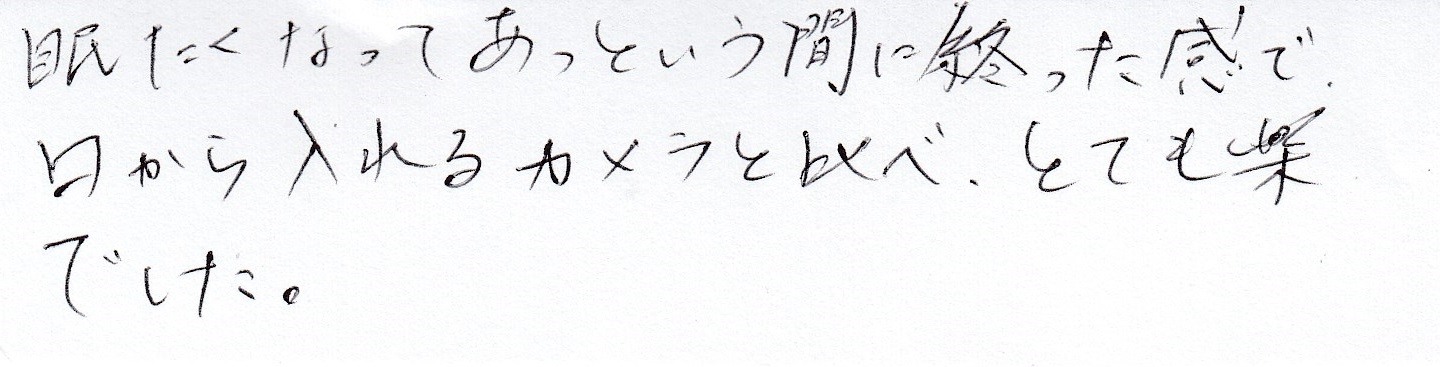 眠たくなってあっという間に終った感で、
口から入れるカメラと比べ、とても楽
でした。